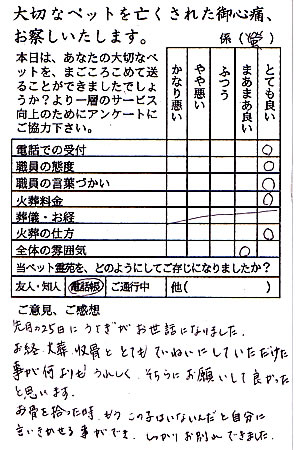 大切なペットを亡くされた御心痛、
お察しいたします。
係(
本日は、あなたの大切なペッ
トを、まごころこめて送
ることができましたでしょ
うか?より一層のサービス
向上のためにアンケートに
ご協力下さい。
かなり悪い
やや悪い
ふつう
まあまあ良い
とても良い
電話での受付 ○
職員の態度 ○
職員の言葉づかい ○
火葬料金 ○
葬儀・お経
火葬の仕方 ○
全体の雰囲気 ○
当ペット霊苑を、どのようにしてご存じになりましたか?
友人・知人 電話帳 ご通行中 他(
ご意見、ご感想
先日の25日にうさぎがお世話になりました。
お経、火葬、収骨ととてもていねいにしていただけた
事が何よりもうれしく、そちらにお願いして良かった
と思います。
お骨を拾った時、もうこの子はいないんだと自分に
言いきかせる事ができ、しっかりお別れできました。